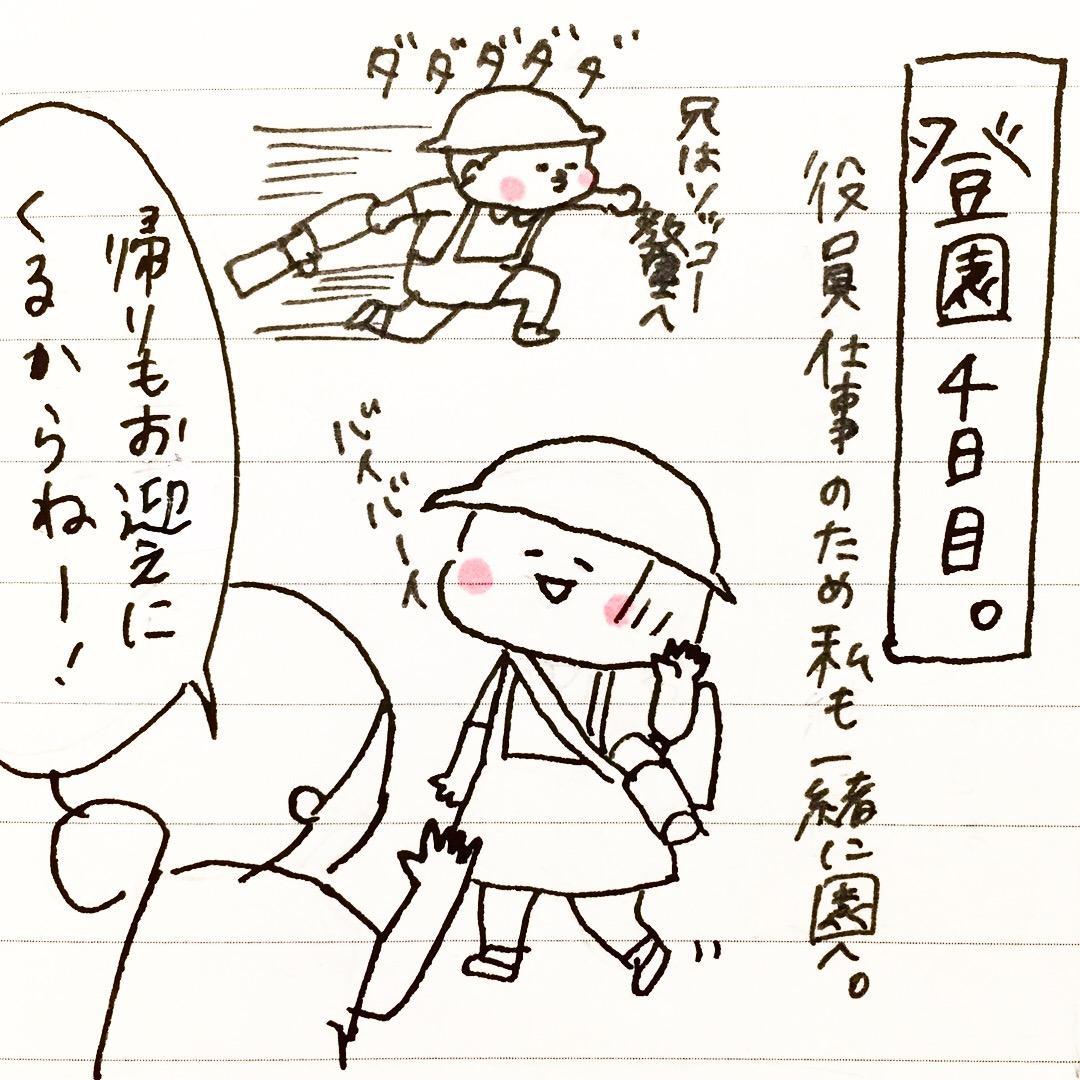 登園4日目。
役員仕事のため私も一緒に園へ。
兄はソッコー
教室へ
ダダダダダ
バイバーイ
帰りもお迎えに
くるからねー!